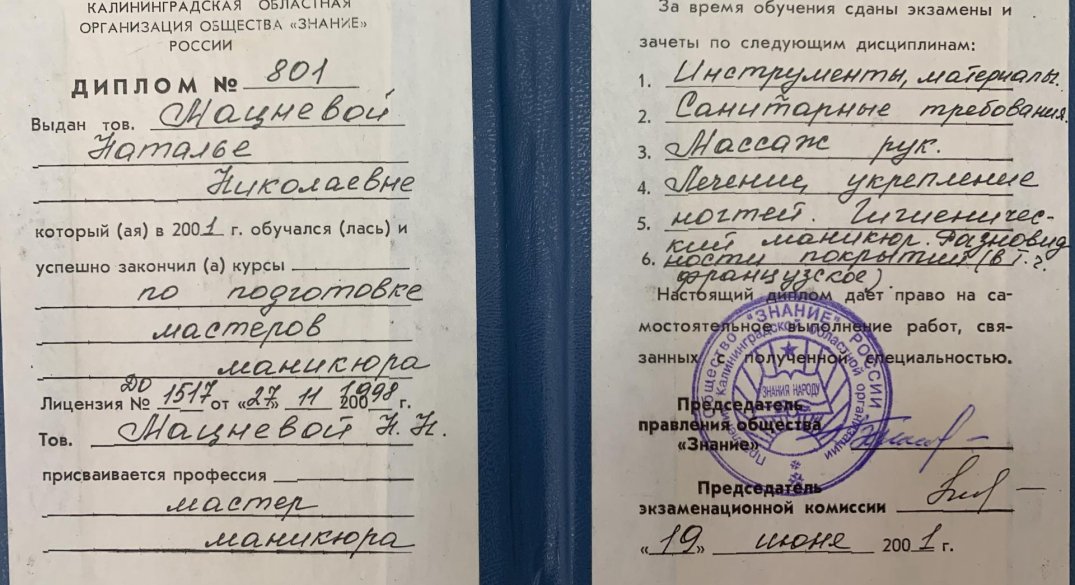 КАЛИНИНГРАДСКАЯ ОБЛАСТНАЯ
ОРГАНИЗАЦИЯ ОБЩЕСТВА «ЗНАНИЕ»
РОССИИ
ДИПЛОМ № 801
Выдан тов. Мацневой
Наталье
Николаевне
который (ая) в 2001 г. обучался (лась) и
успешно закончил (а) курсы
по подготовке
мастеров
маникюра
ДО
Лицензия № 1517 от «27» 11 1998 г.
Тов. Мацневой Н.Н.
присваивается профессия
мастер
маникюра
За время обучения сданы экзамены и
зачеты по следующим дисциплинам:
1. Инструменты, материалы.
2. Санитарные требования.
3. Массаж рук.
4. Лечение, укрепление
5. ногтей. Гигиеничес-
кий маникюр. Разновид
6. ности покрытий (в т.ч.
французское).
Настоящий диплом дает право на са-
мостоятельное выполнение работ, свя-
занных с полученной специальностью.
Председатель
правления общества
«Знание»
Председатель
экзаменационной комиссии
«19» июня 2001 г.
Общество "ЗНАНИЕ" РОССИИ
Правление Калининградской областной организации
ЗНАНИЯ НАРОДУ